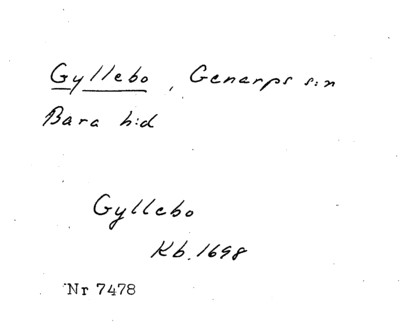 Gyllebo, Genarps s:n
Bara h:d
Gyllebo
Kb. 1698
Nr 7478